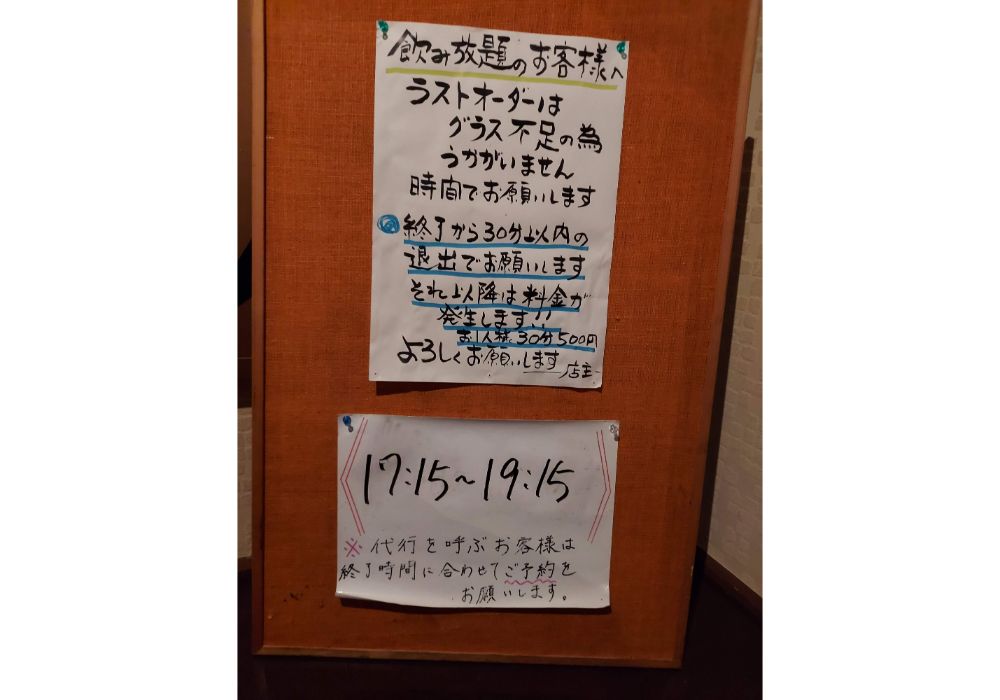 飲み放題のお客様へ
ラストオーダーは
グラス不足の為
うかがいません
時間でお願いします
終了から30分以内の
退出でお願いします
それ以降は料金が
発生します!!
お1人様30分500円
よろしくお願いします
店主
17:15~19:15
※代行を呼ぶお客様は
終了時間に合わせてご予約を
お願いします。